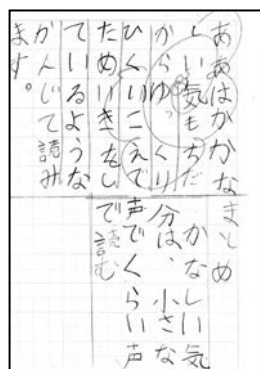 ああはがかな
しい気もちだ
からゆっくり
ひくいこえで
ためいきをし
ているような
かんじで読み
ます。
まとめ
かなしい気
分は、小さな
声でくらい声
で読む